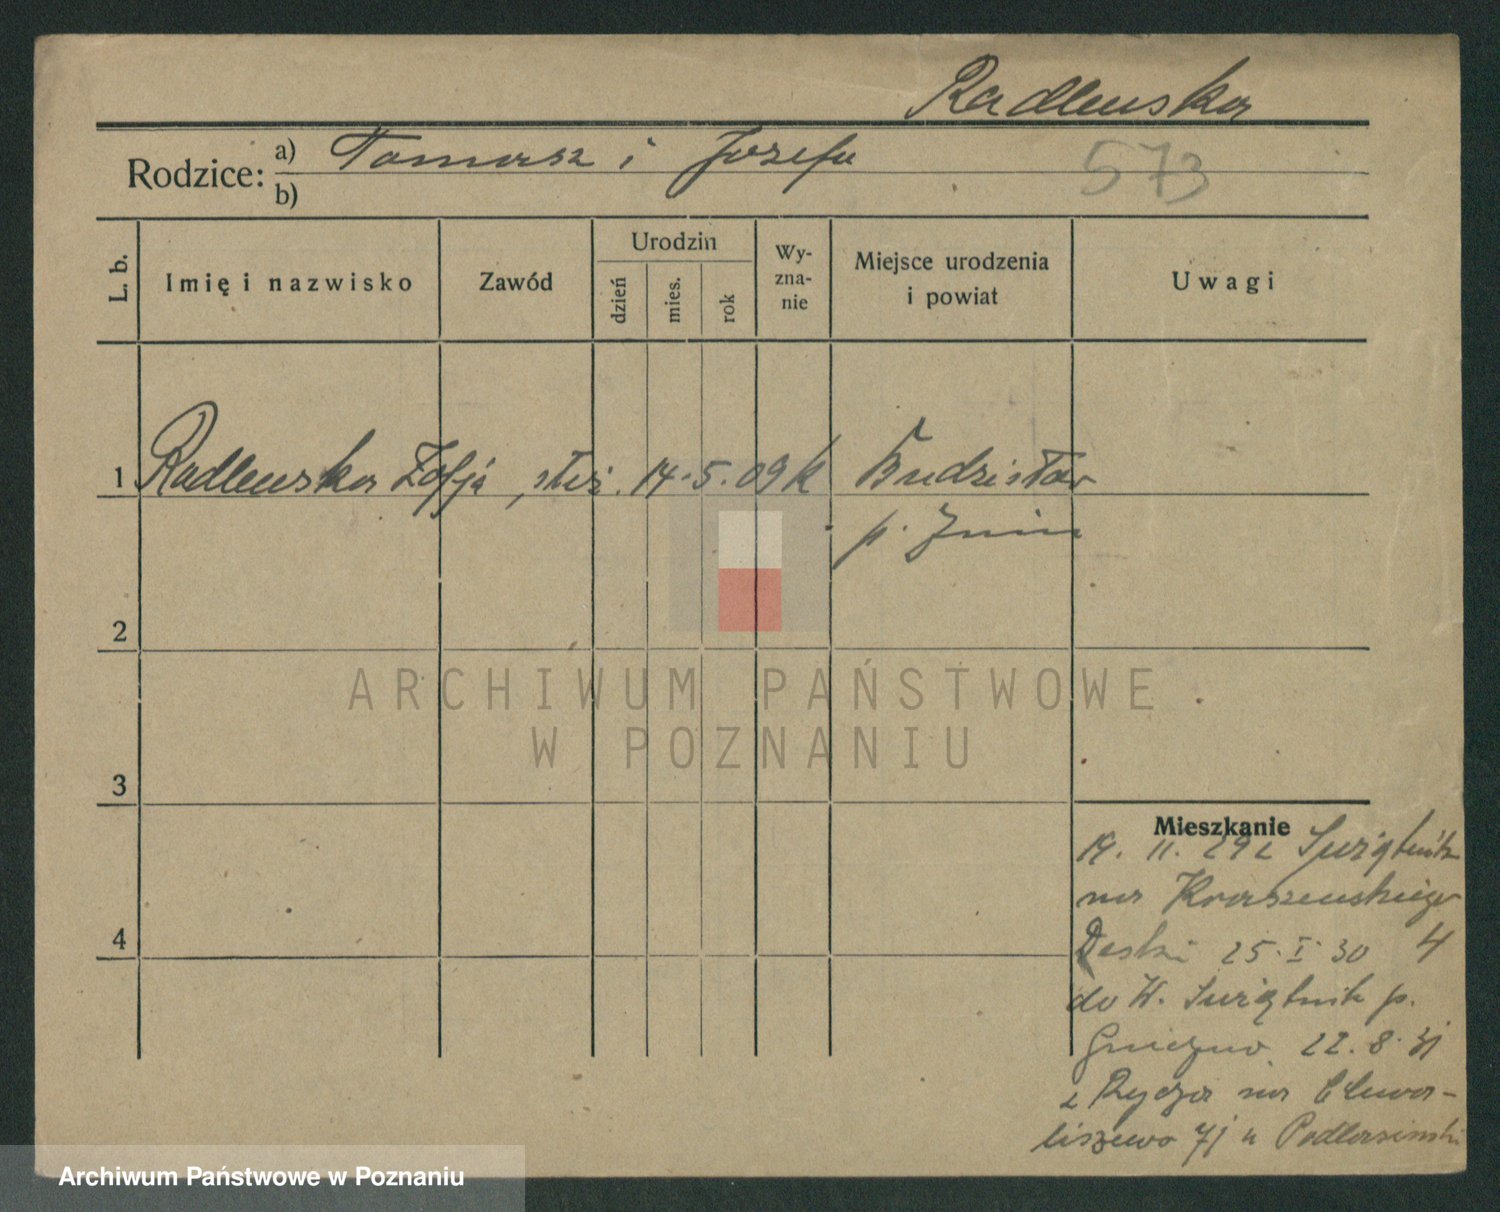 Radlewska
Rodzice: a) Tomasz i Józefa
b)
573
L. b.
Imię i nazwisko
Zawód
Urodzin
dzień
mies.
rok
Wy-
zna-
nie
Miejsce urodzenia
i powiat
Uwagi
1 Radlewska Zofja, służ. 14. 5. 09 k Budzisław
p. Żnin
2
3
4
ARCHIWUM PAŃSTWOWE
W POZNANIU
Mieszkanie
14. 11. 29 z Świątnik
na Kraszewskiego
25. I. 30 4
do W. Świątnik p.
Gniezno 22. 8. 31
z na Chwa-
liszewo 71 u
Archiwum Państwowe w Poznaniu